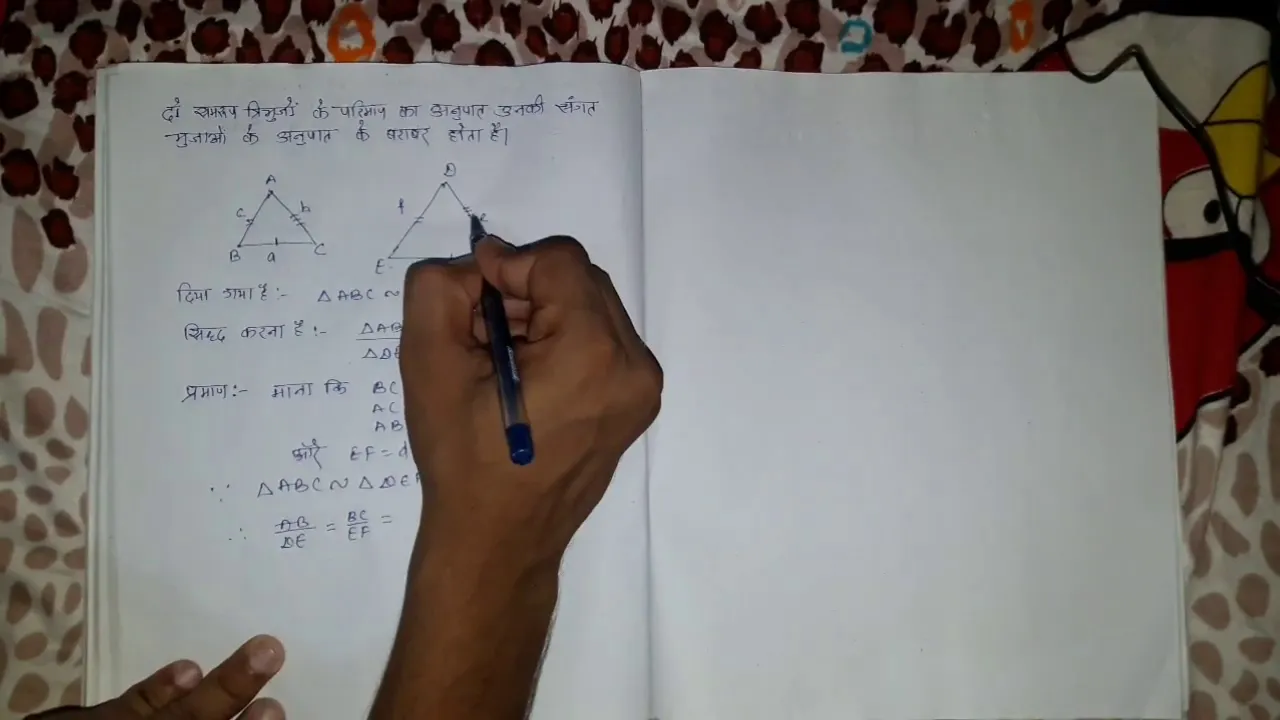 दो समरूप त्रिभुजों के परिमाप का अनुपात उनकी संगत
भुजाओं के अनुपात के बराबर होता है।
A
c b
B a C
D
f e
E
दिया गया है :- △ABC ~
सिद्ध करना है :- △AB
△DE
प्रमाण:- माना कि BC
AC
AB
और EF = d
∵ △ABC ~ △DEF
∴ AB/DE = BC/EF =